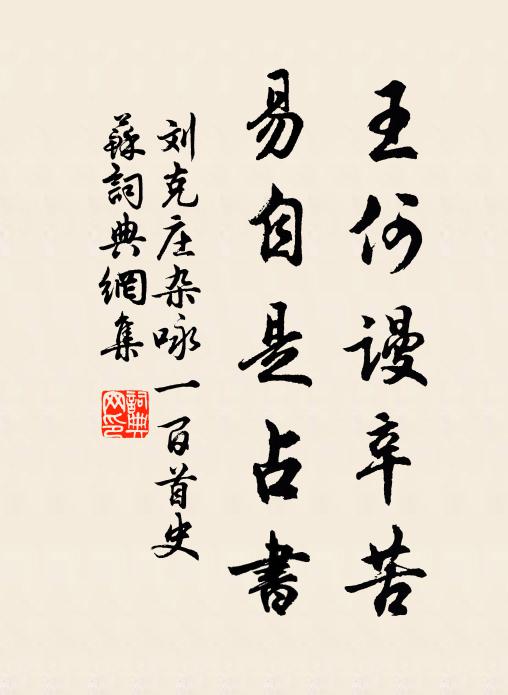 王何谩辛苦
易自是占書
刘克庄杂咏一百首史
蘇詞典網集
詞典
网印